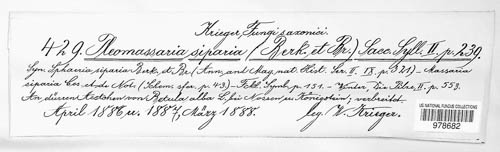 Krieger, Fungi saxonici.
429. Pleomassaria siparia (Berk. et Br.) Sacc. Syll. II. p. 239.
Syn. Sphaeria siparia Berk. et Br. (Ann. and Mag. nat. Hist. Ser. II. IX. p. 321) – Massaria
siparia Ces. et de Not. (Schem. sfer. p. 43) – Fckl. Symb. p. 151. – Winter, Die Pilze, II. p. 553.
An dürren Aestchen von Betula alba L. bei Nossen u. Königstein, verbreitet.
April 1886, u. 1887, März 1888. leg. W. Krieger.
US NATIONAL FUNGUS COLLECTIONS
978682